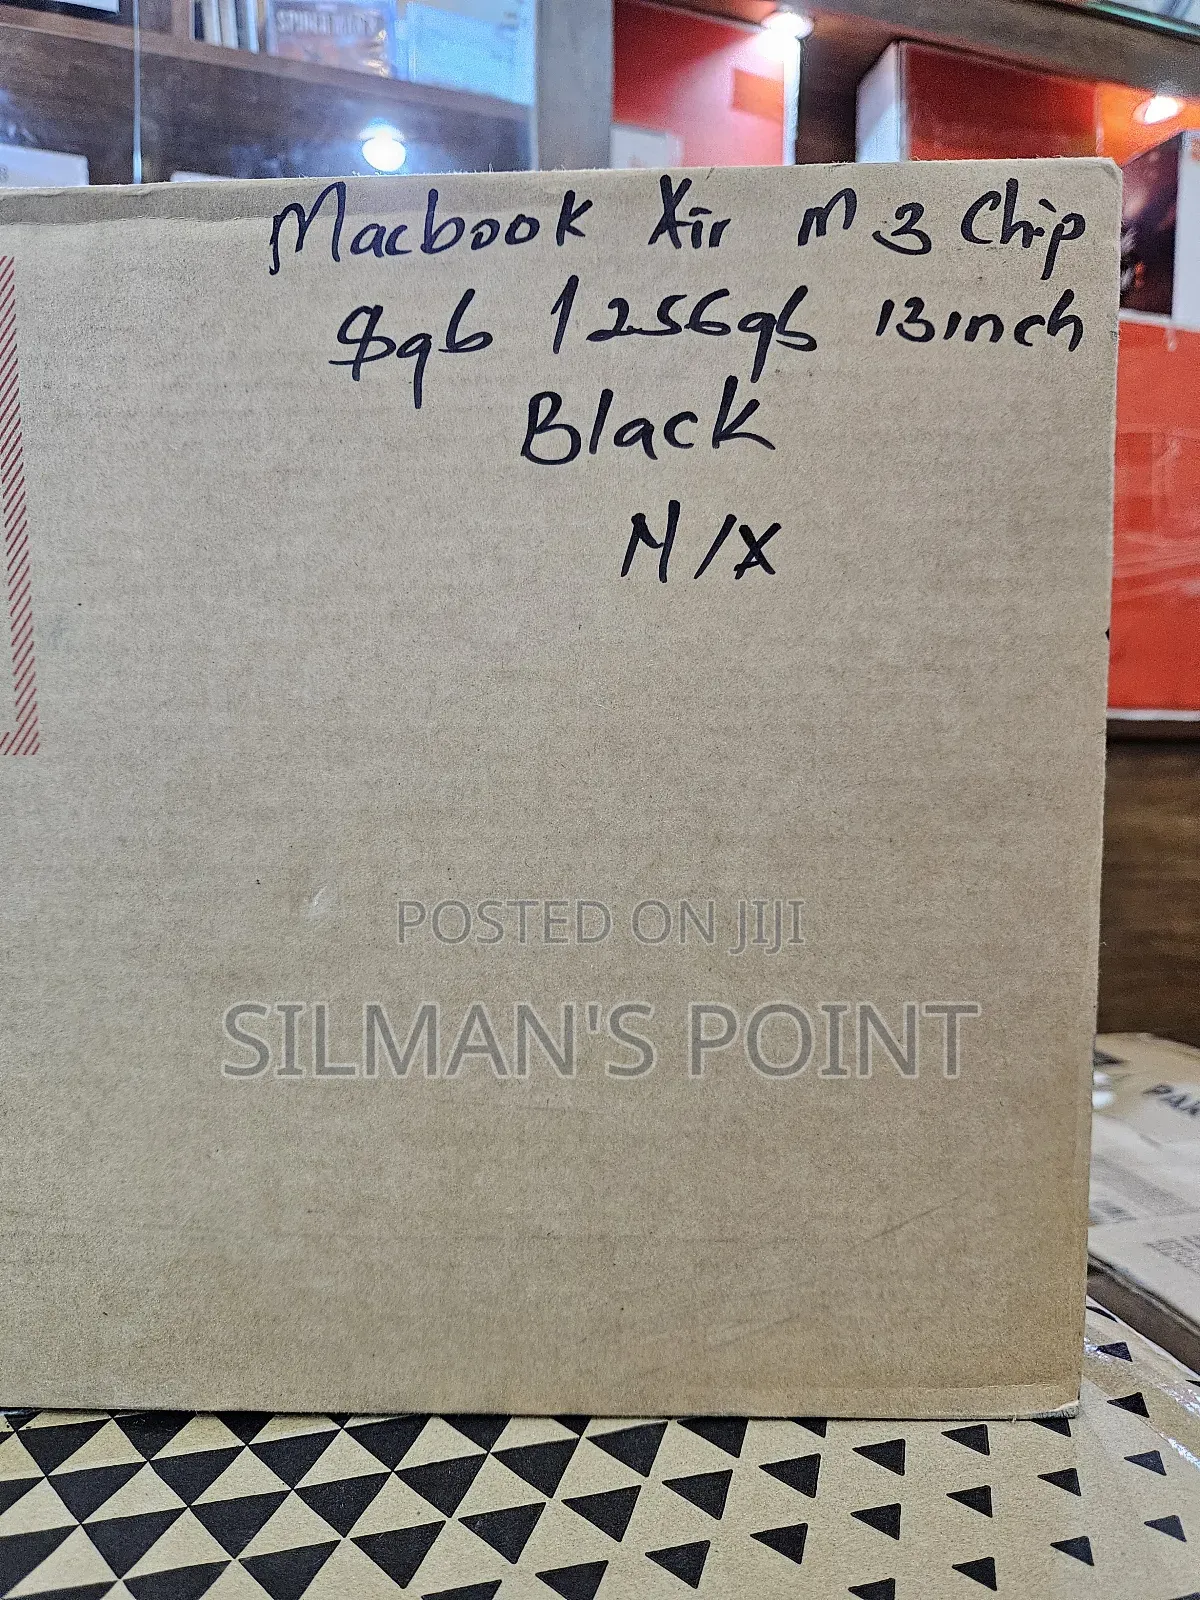 Macbook Air M3 Chip
8gb / 256gb 13inch
Black
N/A
POSTED ON JIJI
SILMAN'S POINT